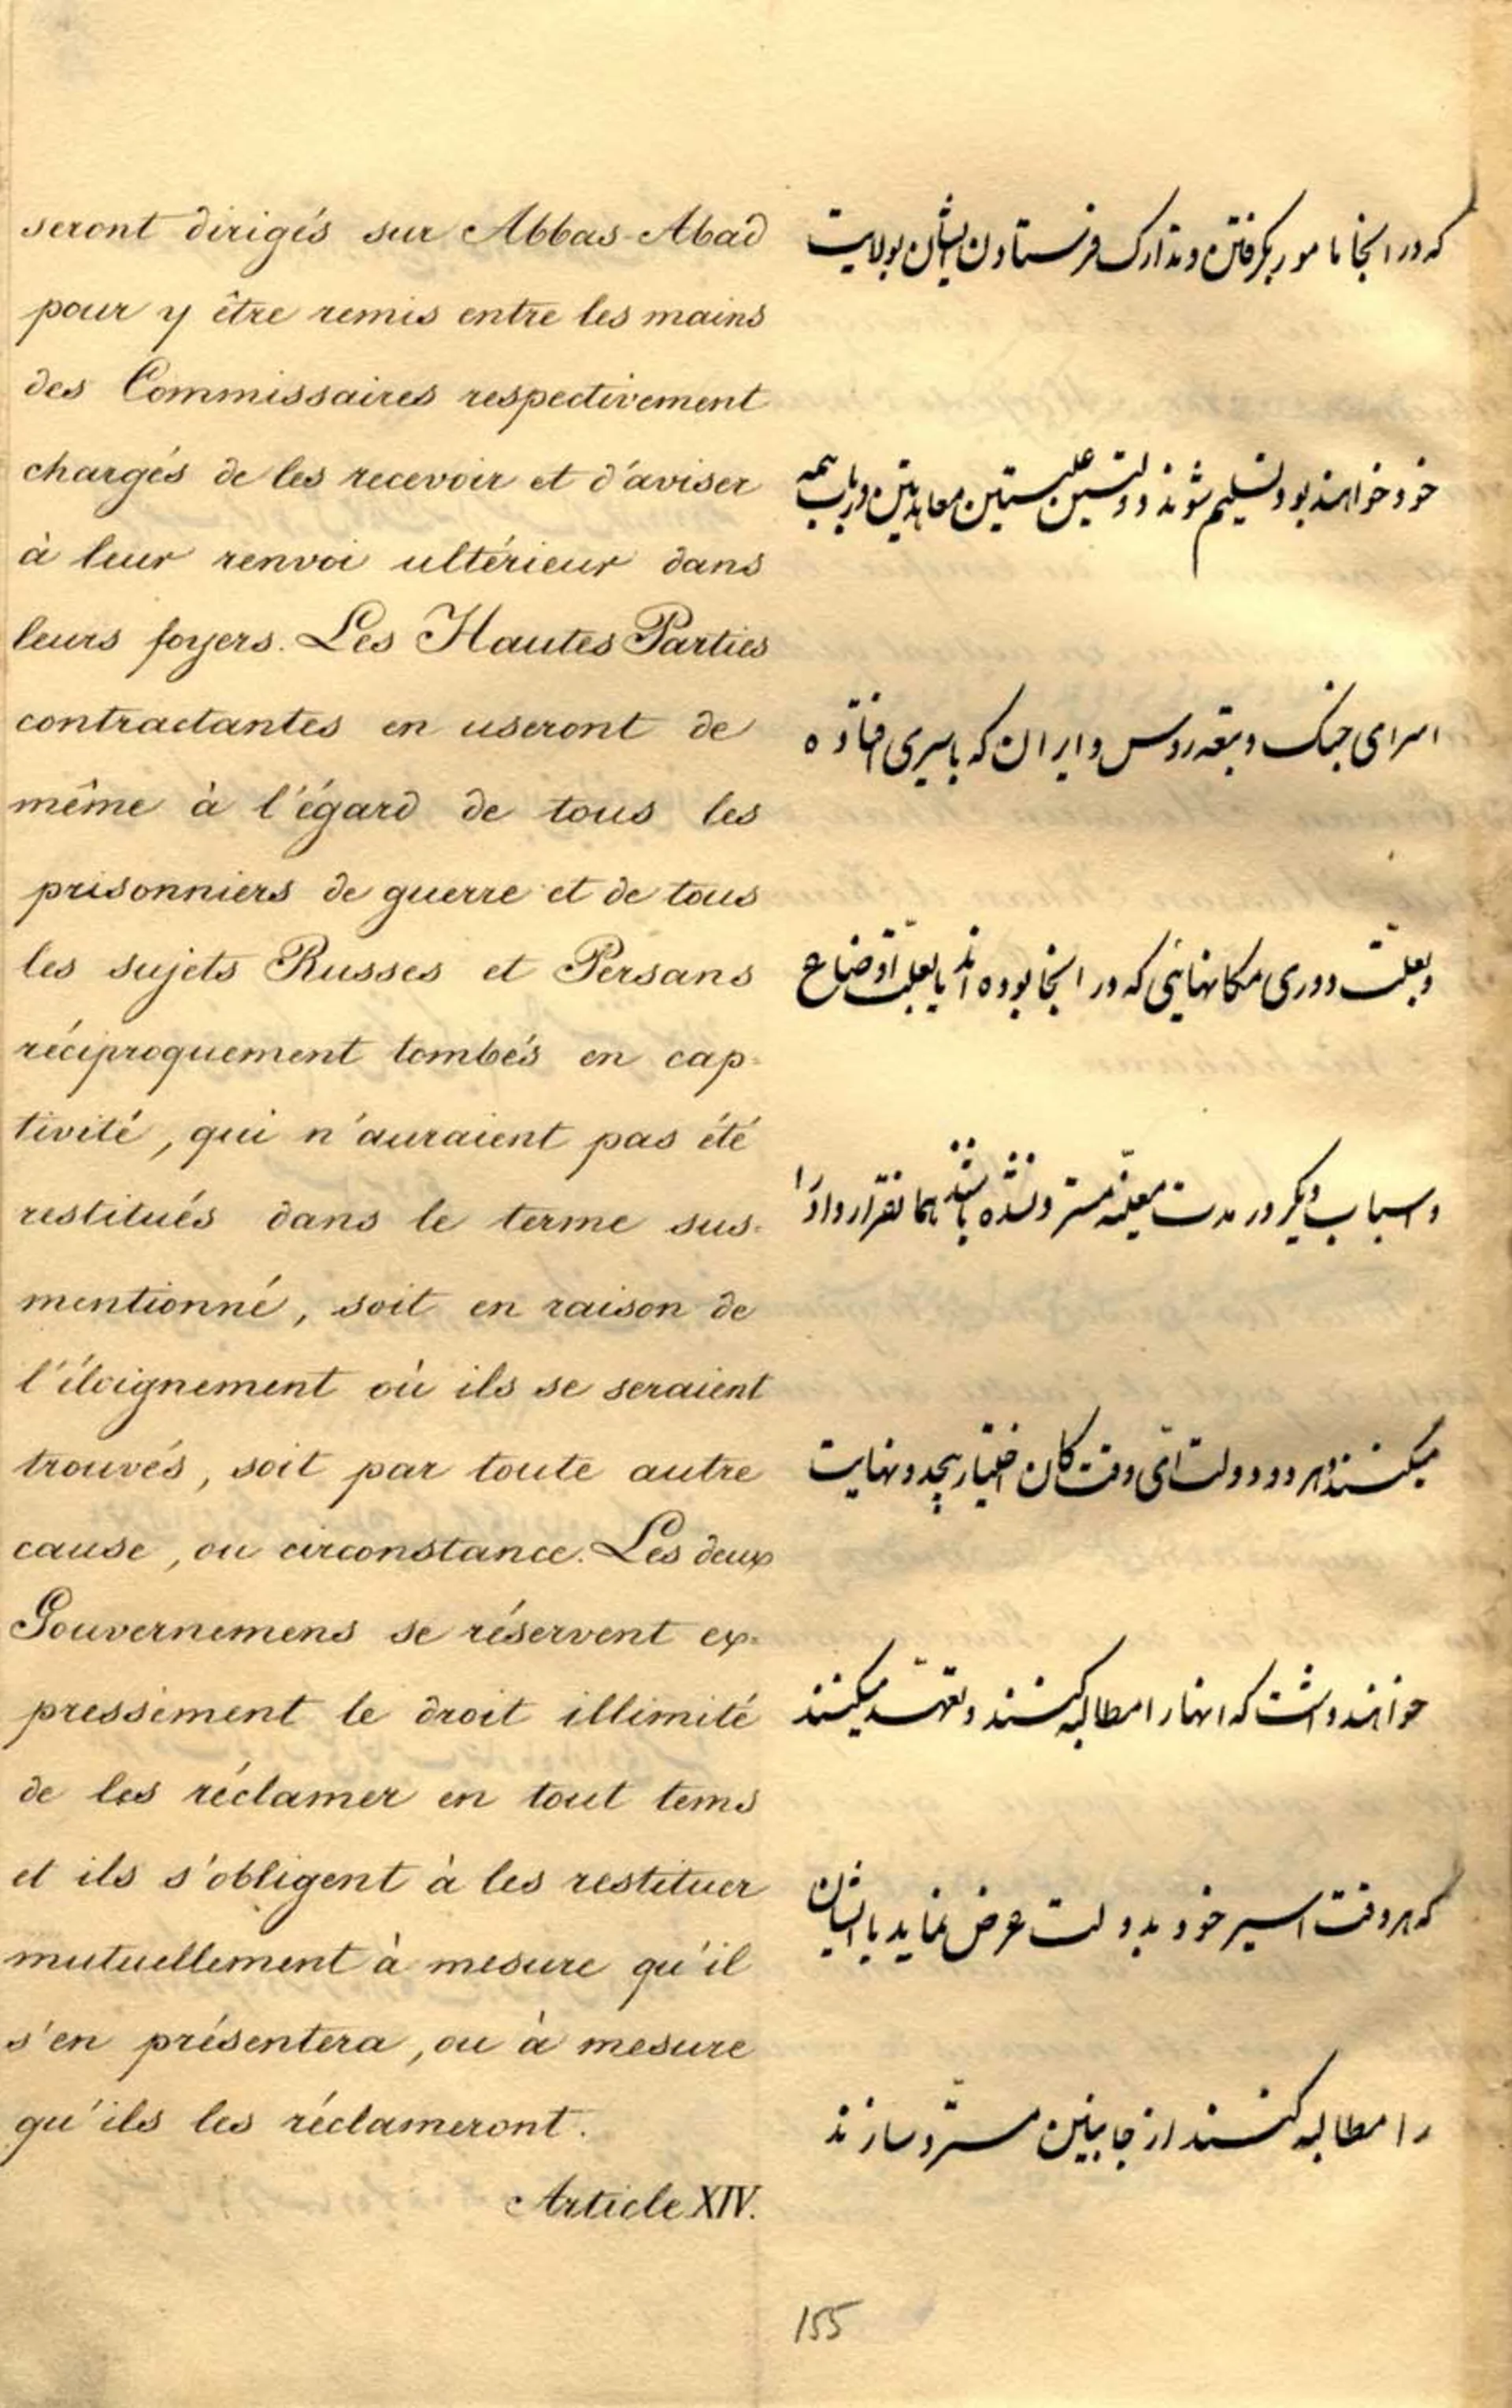 seront dirigés sur Abbas-Abad
pour y être remis entre les mains
des Commissaires respectivement
chargés de les recevoir et d'aviser
à leur renvoi ultérieur dans
leurs foyers. Les Hautes Parties
contractantes en useront de
même à l'égard de tous les
prisonniers de guerre et de tous
les sujets Russes et Persans
réciproquement tombés en cap-
tivité, qui n'auraient pas été
restitués dans le terme sus-
mentionné, soit en raison de
l'éloignement où ils se seraient
trouvés, soit par toute autre
cause, ou circonstance. Les deux
Gouvernemens se réservent ex-
pressément le droit illimité
de les réclamer en tout tems
et ils s'obligent à les restituer
mutuellement à mesure qu'il
s'en présentera, ou à mesure
qu'ils les réclameront.
Article XIV.
که در انجا مامور بگرفتن و تدارک فرستادن ایشان بولایت
خود خواهند بود تسلیم شوند دولتین علیتین معاهدتین در باب همه
اسرای جنک و تبعه روس و ایران که باسیری افتاده
و بعلت دوری مکانهائی که در انجا بوده اند یا بعلت اوضاع
و اسباب دیگر در مدت معینه مسترد نشده باشند همان قرارداد را
میکنند و هر دو دولت ای وقت کان اختیار بیحد و نهایت
خواهند داشت که انها را مطالبه کنند و تعهد میکنند
که هر وقت اسیر خود بدولت عرض نماید یا ایشان
را مطالبه کنند از جانبین مسترد سازند
155